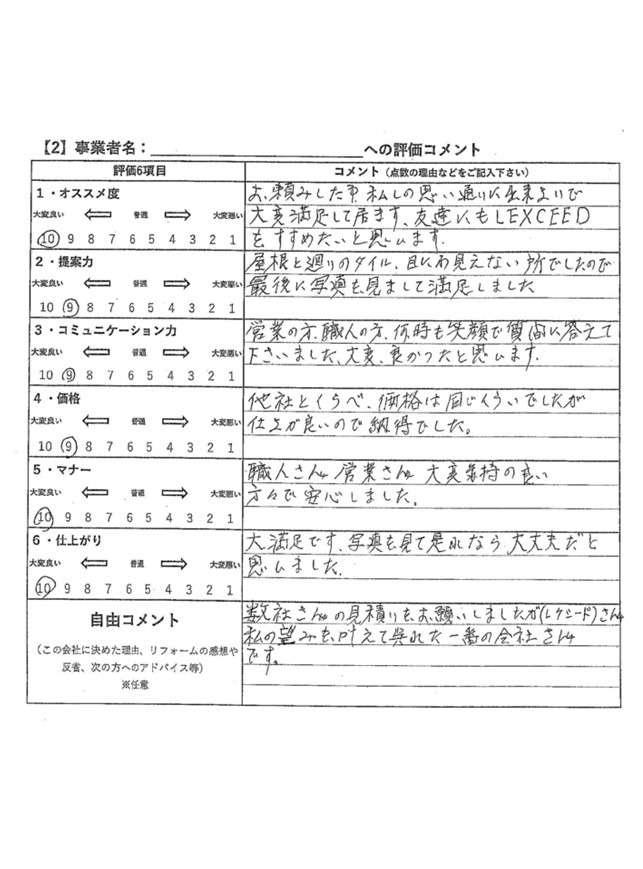 【2】事業者名： への評価コメント
評価6項目
コメント（点数の理由などをご記入下さい）
1・オススメ度
大変良い 普通 大変悪い
10 9 8 7 6 5 4 3 2 1
お頼みした事、私しの思い通りに出来よいで
大変満足して居ます、友達にもLEXCEED
をすすめたいと思います.
2・提案力
大変良い 普通 大変悪い
10 9 8 7 6 5 4 3 2 1
屋根と廻りのタイル、目にわ見えない所でしたので
最後に写真も見まして満足しました
3・コミュニケーション力
大変良い 普通 大変悪い
10 9 8 7 6 5 4 3 2 1
営業の方、職人の方、何時も笑顔で質問に答えて
下さいました、大変、良かったと思います.
4・価格
大変良い 普通 大変悪い
10 9 8 7 6 5 4 3 2 1
他社とくらべ、価格は同じくらいでしたが
仕上が良いので納得でした。
5・マナー
大変良い 普通 大変悪い
10 9 8 7 6 5 4 3 2 1
職人さん 営業さん 大変気持の良い
方々で安心しました.
6・仕上がり
大変良い 普通 大変悪い
10 9 8 7 6 5 4 3 2 1
大満足です、写真も見て是れなら大丈夫だと
思いました.
自由コメント
（この会社に決めた理由、リフォームの感想や
反省、次の方へのアドバイス等）
※任意
数社さんの見積りもお願いしましたが(レクシード)さん
私の望みも叶えて呉れた一番の会社さん
です。